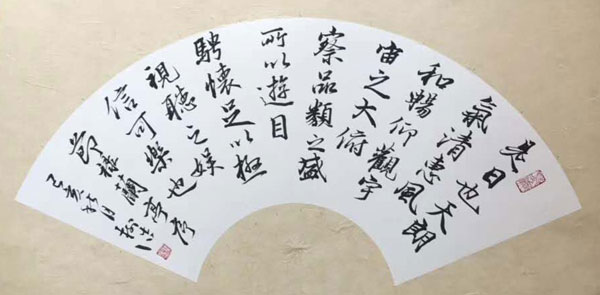 是日也天朗
氣清惠風
和暢仰觀宇
宙之大俯
察品類之盛
所以遊目
騁懷足以極
視聽之娛
信可樂也
節蘭亭序
己亥秋月